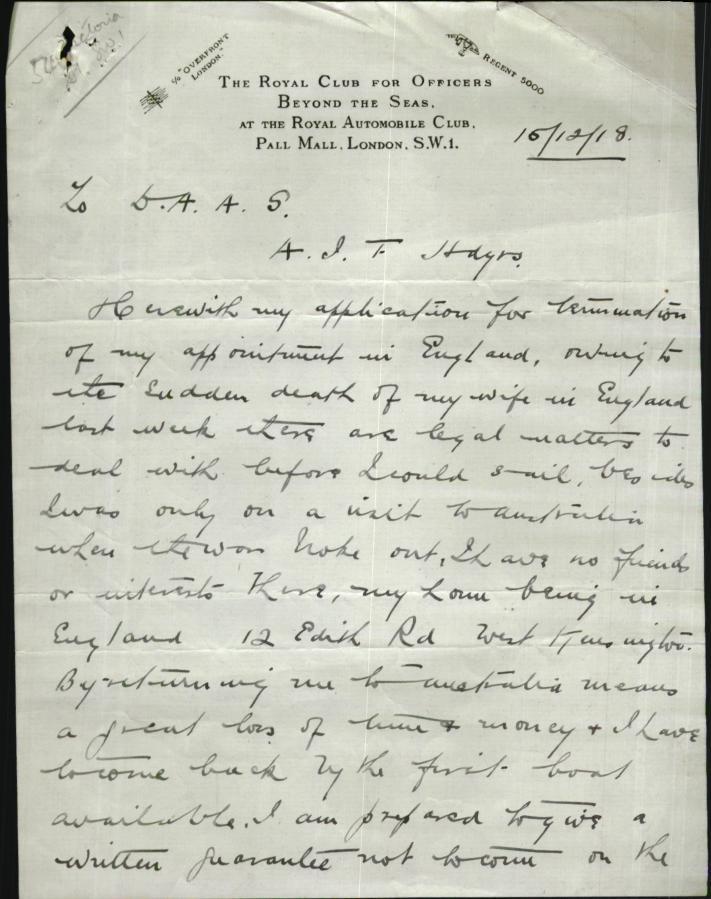 54 Victoria
St. SW1
C/o "OVERFRONT
LONDON."
REGENT 5000
THE ROYAL CLUB FOR OFFICERS
BEYOND THE SEAS,
AT THE ROYAL AUTOMOBILE CLUB,
PALL MALL, LONDON, S.W.1.
16/12/18.
To D.A.A.G.
A.I.F Hdqrs.
Herewith my application for termination
of my appointment in England, owing to
the sudden death of my wife in England
last week there are legal matters to
deal with before I could sail, besides
I was only on a visit to Australia
when the war broke out, I have no friends
or interests there, my home being in
England 12 Edith Rd West Kensington.
By returning me to Australia means
a great loss of time & money & I have
to come back by the first boat
available. I am prepared to give a
written guarantee not to come on the